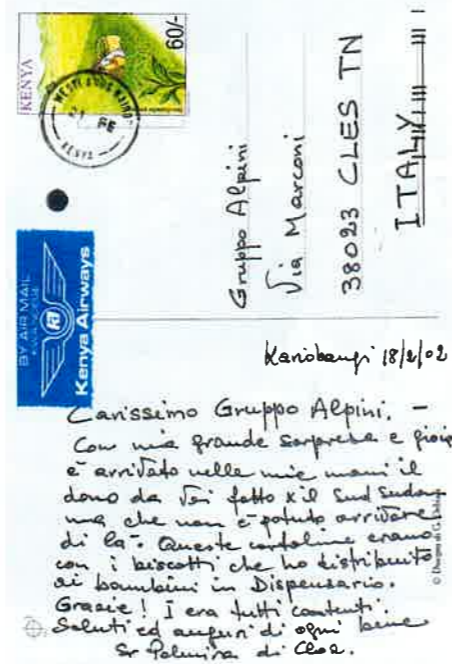 KENYA
60/-
KENYA
BY AIR MAIL
Kenya Airways
Gruppo Alpini
Via Marconi
38023 CLES TN
ITALY
Kariobangi 18/2/02
Carissimo Gruppo Alpini. -
Con mia grande sorpresa e gioia
è arrivato nelle mie mani il
dono da Voi fatto x il Sud Sudan
ma che non è potuto arrivare
di là. Queste cartoline erano
con i biscotti che ho distribuito
ai bambini in Dispensario.
Grazie! I era tutti contenti.
Saluti ed auguri di ogni bene
Sr Palmira di Cles.